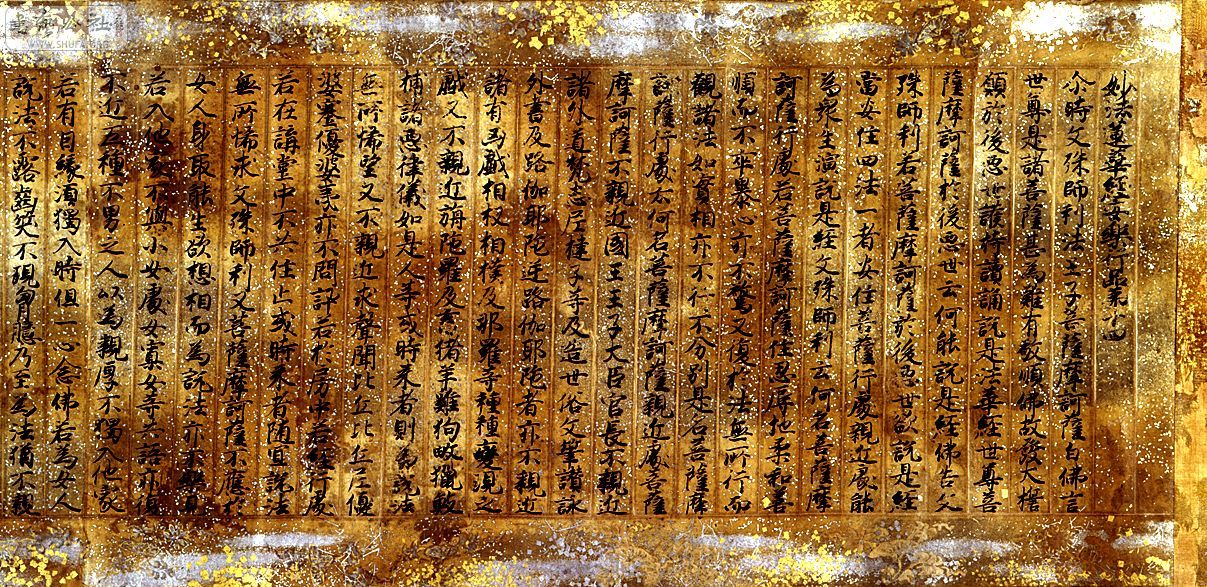 妙法蓮華經安樂行品第十四
尒時文殊師利法王子菩薩摩訶薩白佛言
世尊是諸菩薩甚為難有敬順佛故發大誓
願於後惡世護持讀誦說是法華經世尊菩
薩摩訶薩於後惡世云何能說是經佛告文
殊師利若菩薩摩訶薩於後惡世欲說是經
當安住四法一者安住菩薩行處親近處能
為眾生演說是經文殊師利云何名菩薩摩
訶薩行處若菩薩摩訶薩住忍辱地柔和善
順而不卒暴心亦不驚又復於法無所行而
觀諸法如實相亦不行不分別是名菩薩摩
訶薩行處云何名菩薩摩訶薩親近處菩薩
摩訶薩不親近國王王子大臣官長不親近
諸外道梵志尼揵子等及造世俗文筆讚詠
外書及路伽耶陀逆路伽耶陀者亦不親近
諸有兇戲相扠相撲及那羅等種種變現之
戲又不親近旃陀羅及畜猪羊雞狗畋獵漁
捕諸惡律儀如是人等或時來者則為說法
無所悕望又不親近求聲聞比丘比丘尼優
婆塞優婆夷亦不問訊若於房中若經行處
若在講堂中不共住止或時來者隨宜說法
無所悕求文殊師利又菩薩摩訶薩不應於
女人身取能生欲想相而為說法亦不樂見
若入他家不與小女處女寡女等共語亦復
不近五種不男之人以為親厚不獨入他家
若有因緣須獨入時但一心念佛若為女人
說法不露齒笑不現胸臆乃至為法猶不親